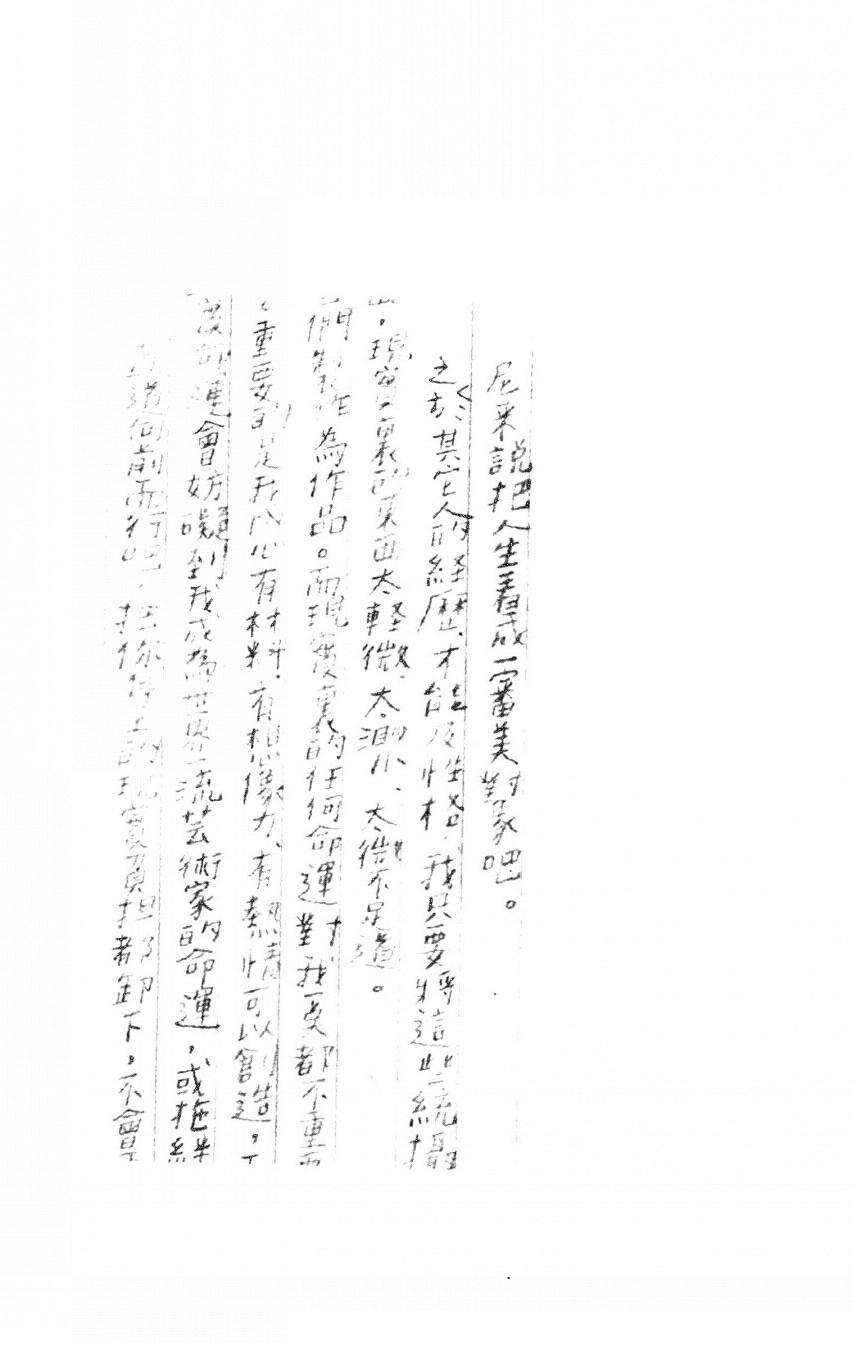 尼采說把人生看成一審美對象吧。
之於其它人的経歷、才能及性格，我只要將這些統攝
。現實裏的東西太軽微、太渺小、太微不足道。
們製作為作品。而現實裏的任何命運對我一ुं都不重
。重要的是我內心有材料、有想像力、有熱情可以創造。
命運會妨礙到我成為世界一流芸術家的命運，或拖絆
向前而行吧，把你身上的現實負担都卸下。不會